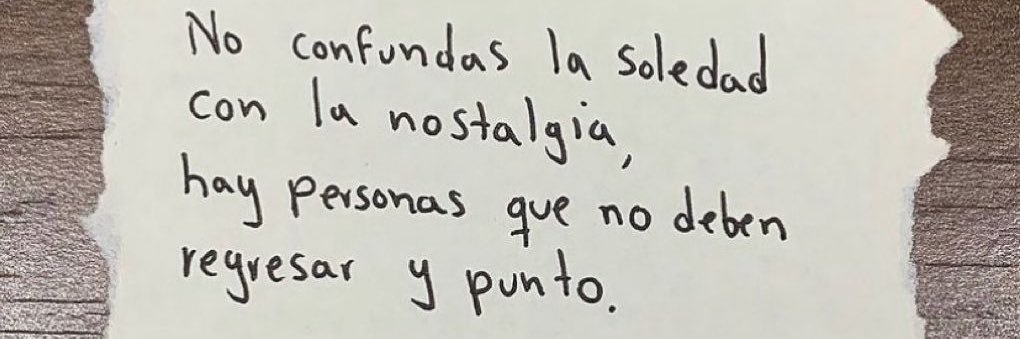 No confundas la soledad
con la nostalgia,
hay personas que no deben
regresar y punto.